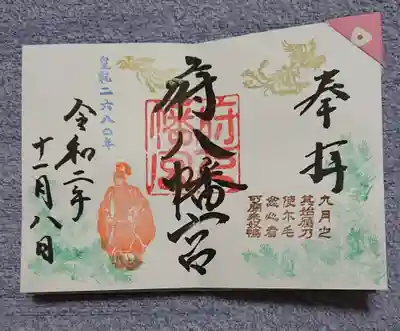 奉拝
九月之
其始鴈乃
使尓毛
念心者
可聞来奴鴨
府八幡宮
府八
幡宮
皇紀二六八〇年
令和二年
十一月八日